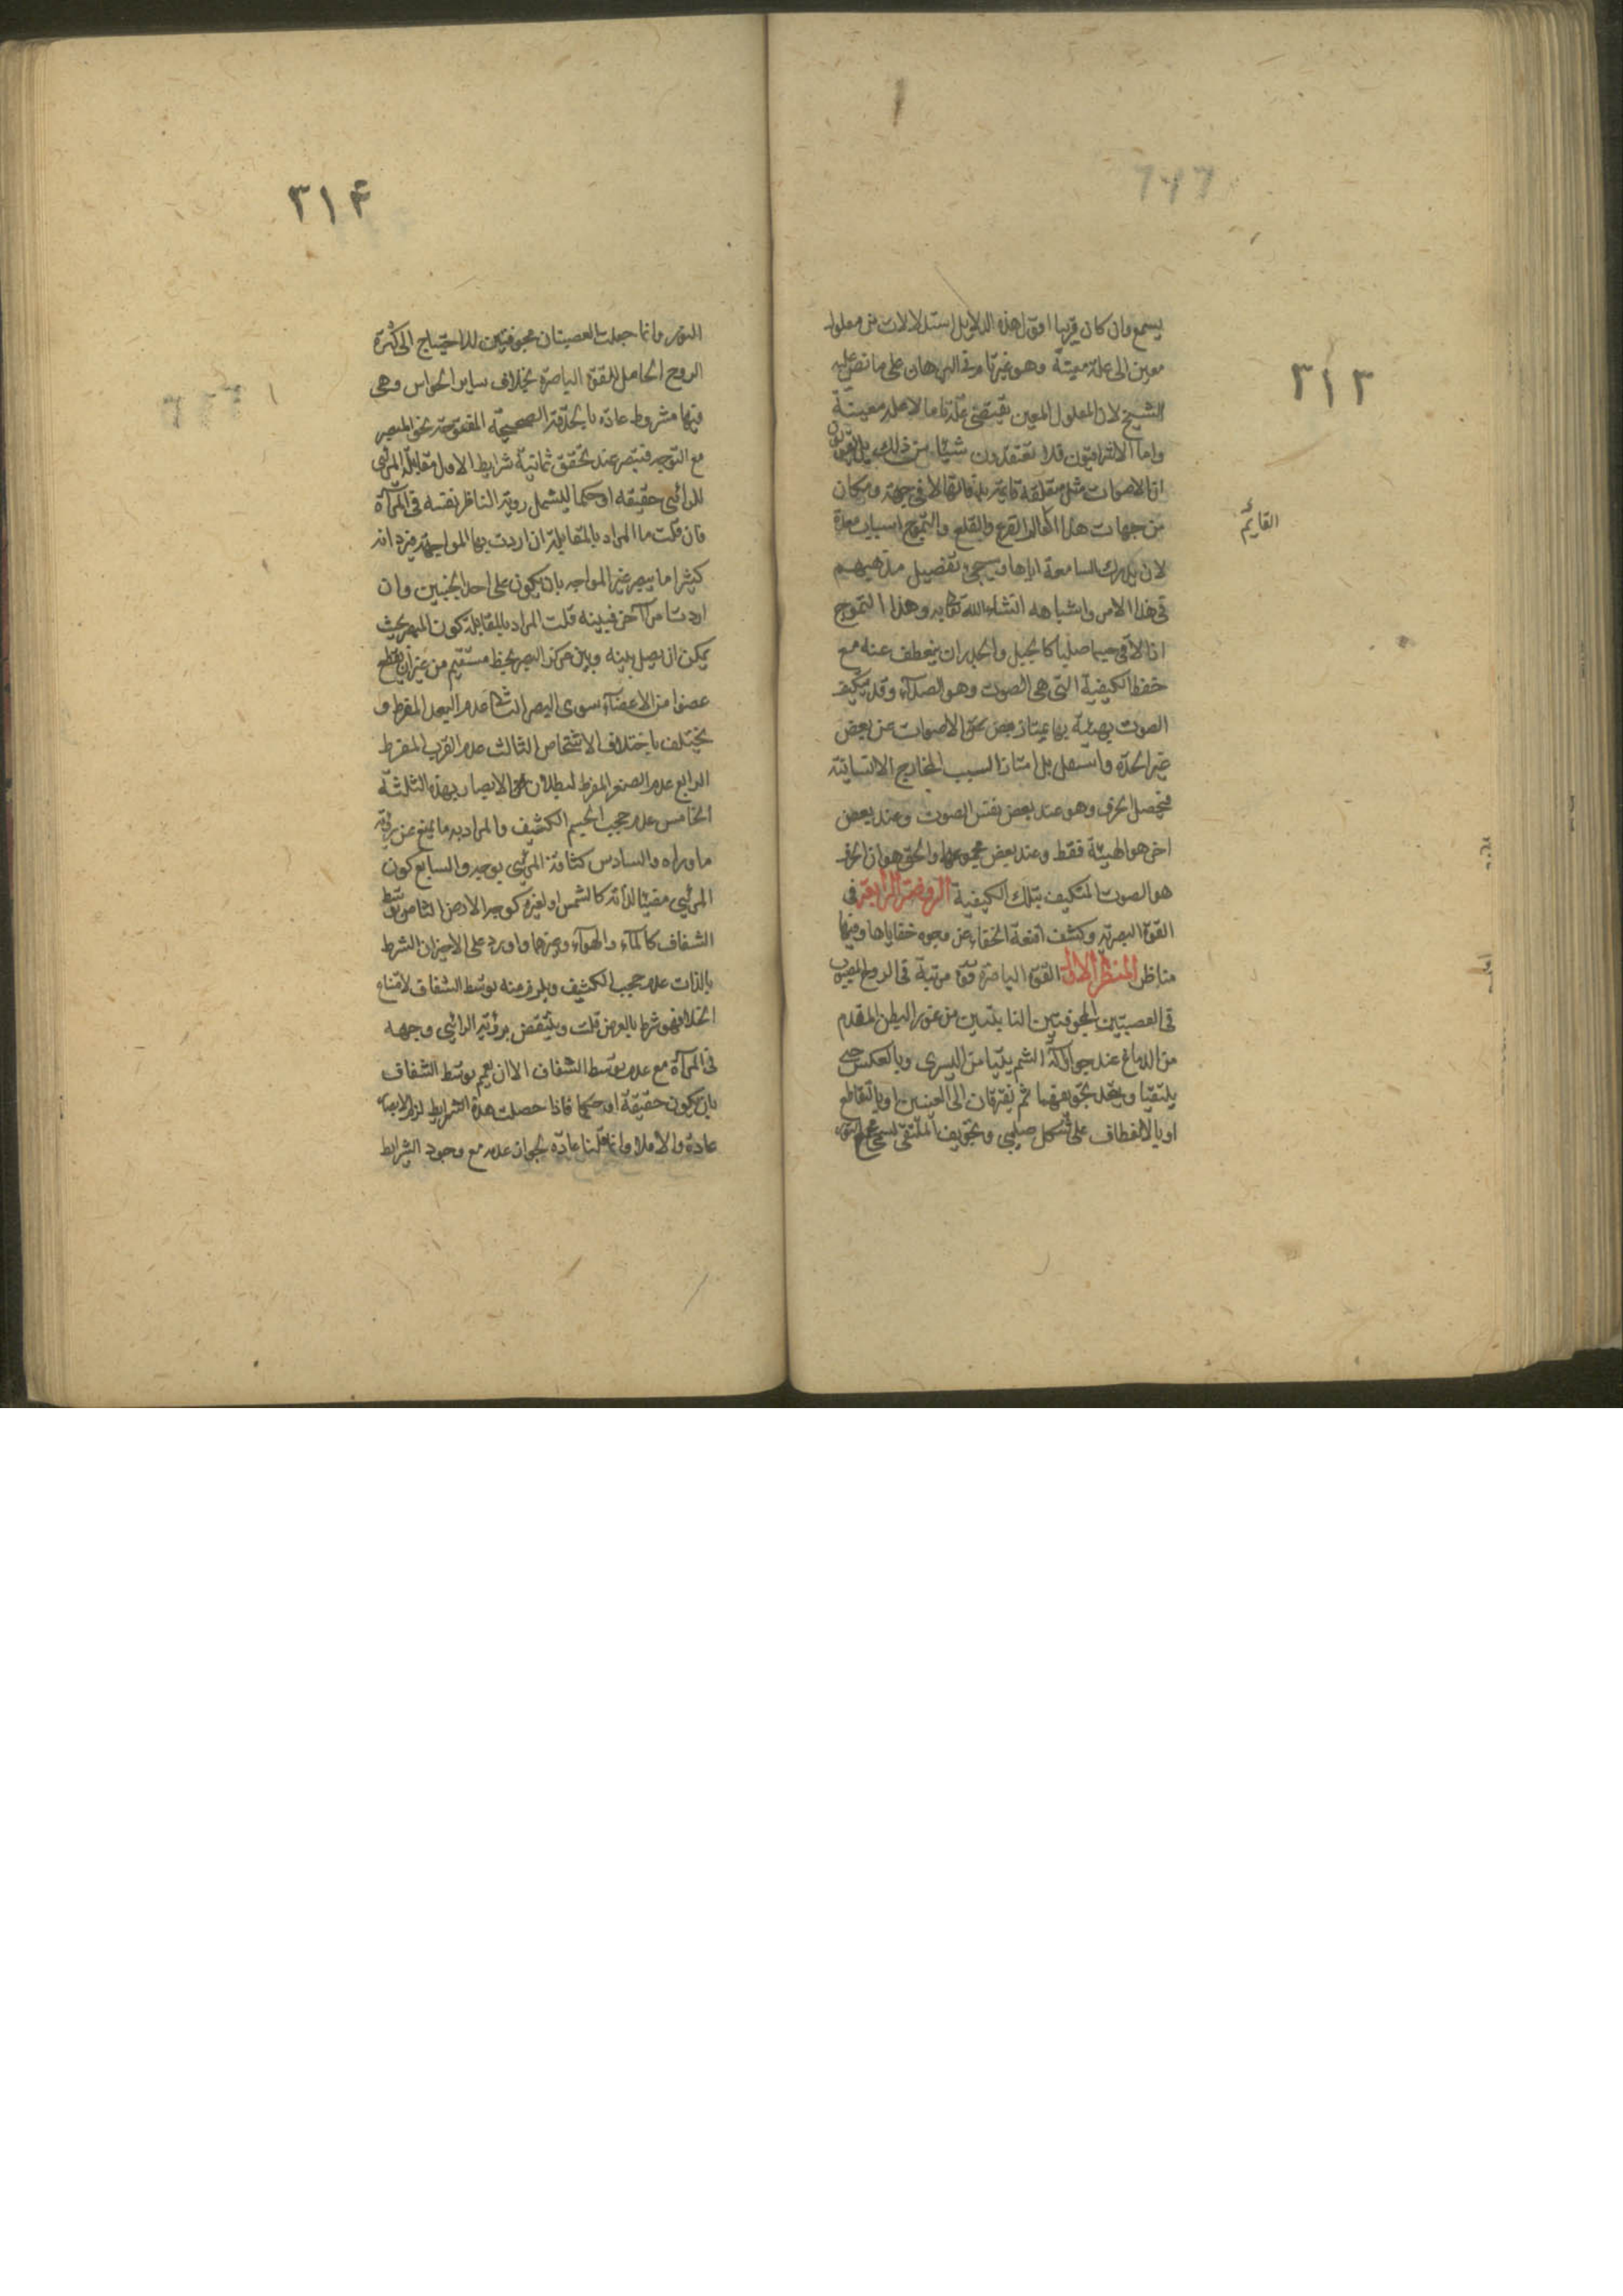 ٣١٣
يسمع وان كان قريبا اقول هذه الدلايل استدلالات من معلول
معين الى علة معينة وهو غير تام فى البرهان على ما نص عليه
الشيخ لان المعلول المعين يقتضى علة ما لا علة معينة
واما الاشراقيون فلا يعتقدون شيئا من ذلك بل يقولون
ان الاصوات مثل معلقة قايمة بذاتها لا فى جهة ومكان
من جهات هذا العالم والقرع والقلع والتموج اسباب معدة
القايم
لان يدرك السامعة اياها وسيجئ تفصيل مذهبهم
فى هذا الامر واشباهه انشاء الله تعالى وهذا التموج
اذا لاقى جسما صلبا كالجبل والجدران ينعطف عنه مع
حفظ الكيفية التى هى الصوت وهو الصداء وقد يتكيف
الصوت بهيئة بها يمتاز بعض الاصوات عن بعض
غير الحدة والثقل بل امتياز السبب المخارج الانسانية
فيحصل الحرف وهو عند بعض نفس الصوت وعند بعض
اخر هو الهيئة فقط وعند بعض مجموعهما والحق هو ان الحرف
هو الصوت المتكيف بتلك الكيفية الروضة الرابعة فى
القوة البصرية وكشف اقنعة الخفاء عن وجوه خفاياها وفيها
مناظر المنظر الاول القوة الباصرة قوة مرتبة فى الروح المصبوب
فى العصبتين المجوفتين النابتتين من غور البطن المقدم
من الدماغ عند جوار آلة الشم يتيامن اليسرى وبالعكس حتى
يلتقيا ويتحد تجويفهما ثم يفترقان الى العينين او بالتقاطع
او بالانعطاف على شكل صليبى وتجويف الملتقى يسمى مجمع النور
٣١۴
النور وانما جعلت العصبتان مجوفتين للاحتياج الى كثرة
الروح الحامل للقوة الباصرة بخلاف ساير الحواس وهى
فيها مشروط عادة بالحدقة الصحيحة المفتوحة نحو المبصر
مع التوجه فتبصر عند تحقق ثمانية شرايط الاول مقابلة المرئى
للرائى حقيقه او حكما ليشمل روية الناظر نفسه فى المرآة
فان قلت ما المراد بالمقابلة ان اردت بها المواجهة فيرد انه
كثيرا ما يبصر غير المواجه بان يكون على احد الجنبين وان
اردت امرا آخر فبينه قلت المراد بالمقابلة كون المبصر بحيث
يمكن ان يصل بينه وبين مركز البصر بخط مستقيم من غير ان يقطع
عضوا من الاعضآء سوى البصر الثانى عدم البعد المفرط و
يختلف باختلاف الاشخاص الثالث عدم القرب المفرط
الرابع عدم الصغر المفرط لبطلان الابصار بهذه الثلثة
الخامس عدم حجب الجسم الكثيف والمراد به ما يمنع عن روية
ماوراه والسادس كثافة المرئى بوجه والسابع كون
المرئى مضيئا لذاته كالشمس او لغيره كوجه الارض الثامن توسط
الشفاف كالمآء والهوآء وغيرهما واورد على الاخير ان الشرط
بالذات عدم حجب الكثيف ويلزم منه توسط الشفاف لامتناع
الخلا فهو شرط بالعرض قلت وينتقض بروية الرائى وجهه
فى المرآة مع عدم توسط الشفاف الا ان يعمم توسط الشفاف
بان يكون حقيقة او حكما فاذا حصلت هذه الشرايط لزم الابصار
عادة والا فلا وانما قلنا عادة لجواز عدمه مع وجود الشرايط